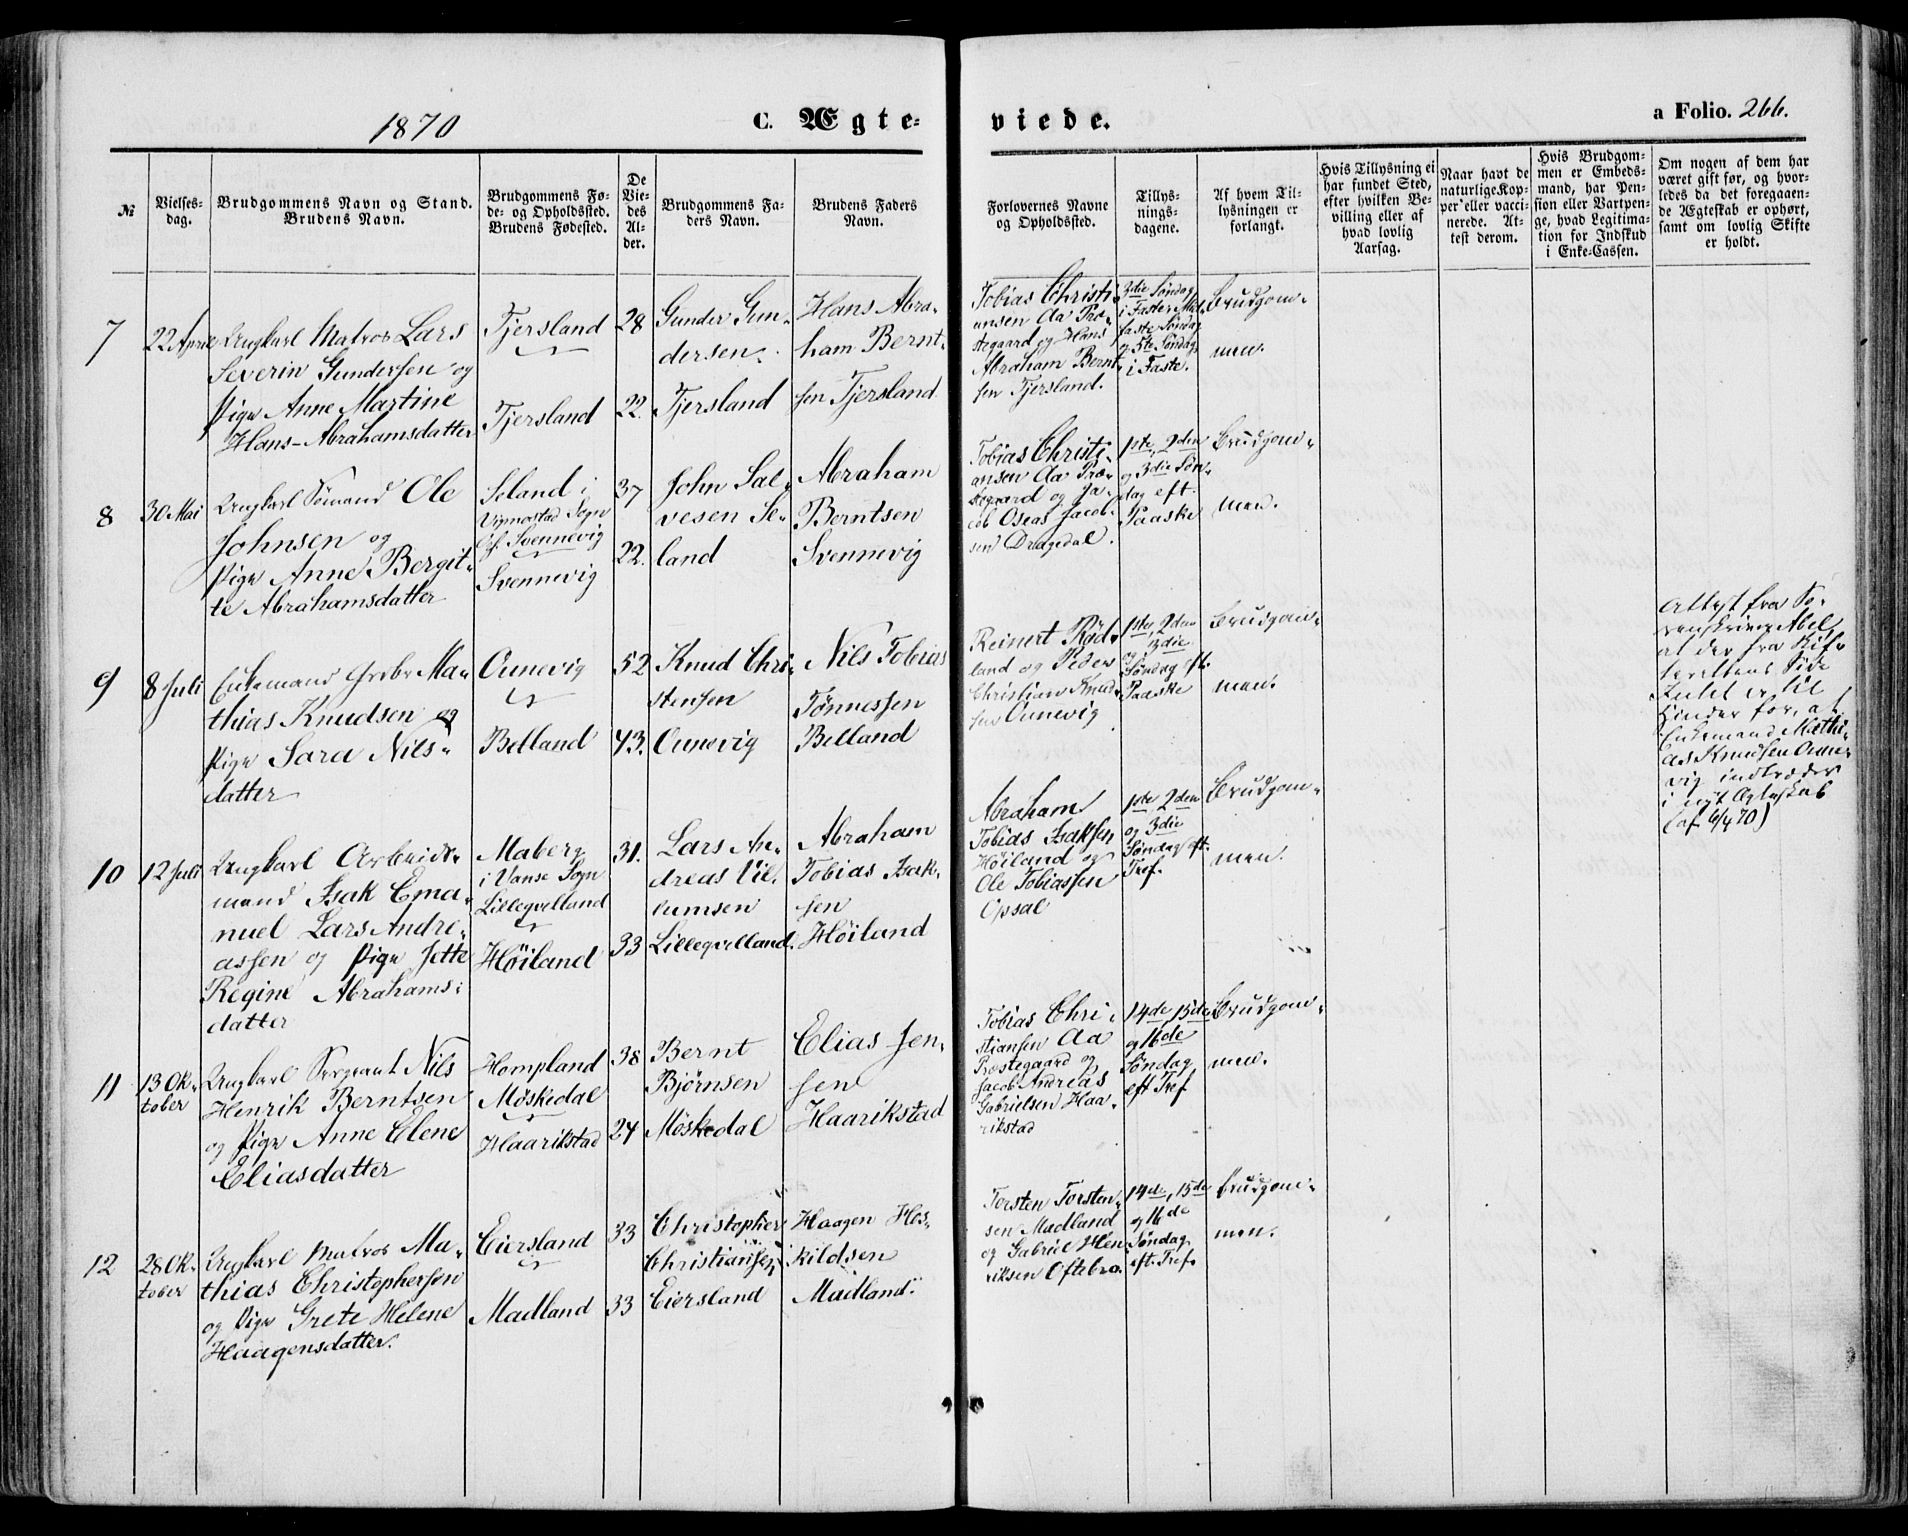 1870
C. Ægteviede.
a Folio. 266.
№
Vielsesdag.
Brudgommens Navn og Stand.
Brudens Navn.
Brudgommens Føde- og Opholdssted.
Brudens Fødested.
De Viedes Alder.
Brudgommens Faders Navn.
Brudens Faders Navn.
Forlovernes Navne og Opholdssted.
Tillysningsdagene.
Af hvem Tillysningen er forlangt.
Hvis Tillysning ei har fundet Sted, efter hvilken Bevilling eller af hvad lovlig Aarsag.
Naar havt de naturlige Kopper eller vaccinerede. Attest derom.
Hvis Brudgommen er Embedsmand, har Pension eller Vartpenge, hvad Legitimation for Indskud i Enke-Cassen.
Om nogen af dem har været gift før, og hvorledes da det foregaaende Ægteskab er ophørt, samt om lovlig Skifte er holdt.
7
22 April
Ungkarl Matros Lars
Severin Gundersen og
Pige Anne Martine
Hans-Abrahamsdatter
Tjersland
Tjersland
28
22.
Gunder Gun-
dersen.
Tjersland
Hans Abra-
ham Bernt-
sen Tjersland
Tobias Christi-
ansen Aa Præ-
stegaard og Hans
Abraham Bernt-
sen Tjersland.
3die Søndag
i Faste, Mid-
faste Søndag
og 5te Søndag
i Faste.
Brudgom-
men.
8
30 Mai
Ungkarl Sømand Ole
Johnsen og
Pige Anne Bergit-
te Abrahamsdatter
Seland i
Vigmostad Sogn
Svennevig
Svennevig
37
22.
John Sal-
vesen Se-
land
Abraham
Berntsen
Svennevig
Tobias Christi-
ansen Aa Præ-
stegaard og Ja-
cob Oseas Jacob-
sen Dragedal.
1ste, 2den
og 3die Søn-
dag eft.
Paaske
Brudgom-
men.
9
8 Juli
Enkemand Grdbr Ma-
thias Knudsen og
Pige Sara Nils-
datter
Ounevig
Belland
52
43.
Knud Chri-
stensen
Ounevig
Nils Tobias
Tønnessen
Belland
Reinert Röd-
land og Peder
Christian Knud-
sen Ounevig
1ste, 2den
og 3die
Søndag eft.
Paaske
Brudgom-
men.
Attest fra So-
renskriver Abel
at der fra Skif-
terettens Side
Intet er til
Hinder for, at
Enkemand Mathi-
as Knudsen Oune-
vig indtræder
i nyt Ægteskab
(af 6/4 70)
10
12 Juli
Ungkarl Arbeids-
mand Isak Ema-
nuel Lars Andre-
assen og Pige Jette
Regine Abrahams-
datter
Maberg
i Vanse Sogn
Lillequelland
Høiland
31.
33
Lars An-
dreas Vil-
lumsen
Lillequelland.
Abraham
Tobias Isak-
sen
Høiland
Abraham
Tobias Isaksen
Höiland og
Ole Tobiassen
Opsal
1ste, 2den
og 3die
Søndag eft.
Tref.
Brudgom-
men.
11
13 Ok-
tober
Ungkarl Sergeant Nils
Henrik Berntsen
og Pige Anne Elene
Eliasdatter
Hompland
Møskedal
Haarikstad
38
24
Bernt
Bjørnsen
Møskedal
Elias Jen-
sen
Haarikstad
Tobias Chri-
stiansen Aa
Præstegaard og
Jacob Andreas
Gabrielsen Haa-
rikstad
14de, 15de
og 16de
Søndag
eft Tref
Brudgom-
men.
12
28 Ok-
tober
Ungkarl Matros Ma-
thias Christophersen
og Pige Grete Helene
Haagensdatter.
Eiersland
Madland
33
33
Christopher
Christiansen
Eiersland
Haagen Hes-
kildsen
Madland.
Torsten Torsten-
sen Madland
og Gabriel Hen-
riksen Oftebro.
14de, 15de
og 16de
Søndag
eft. Tref.
Brudgom-
men.